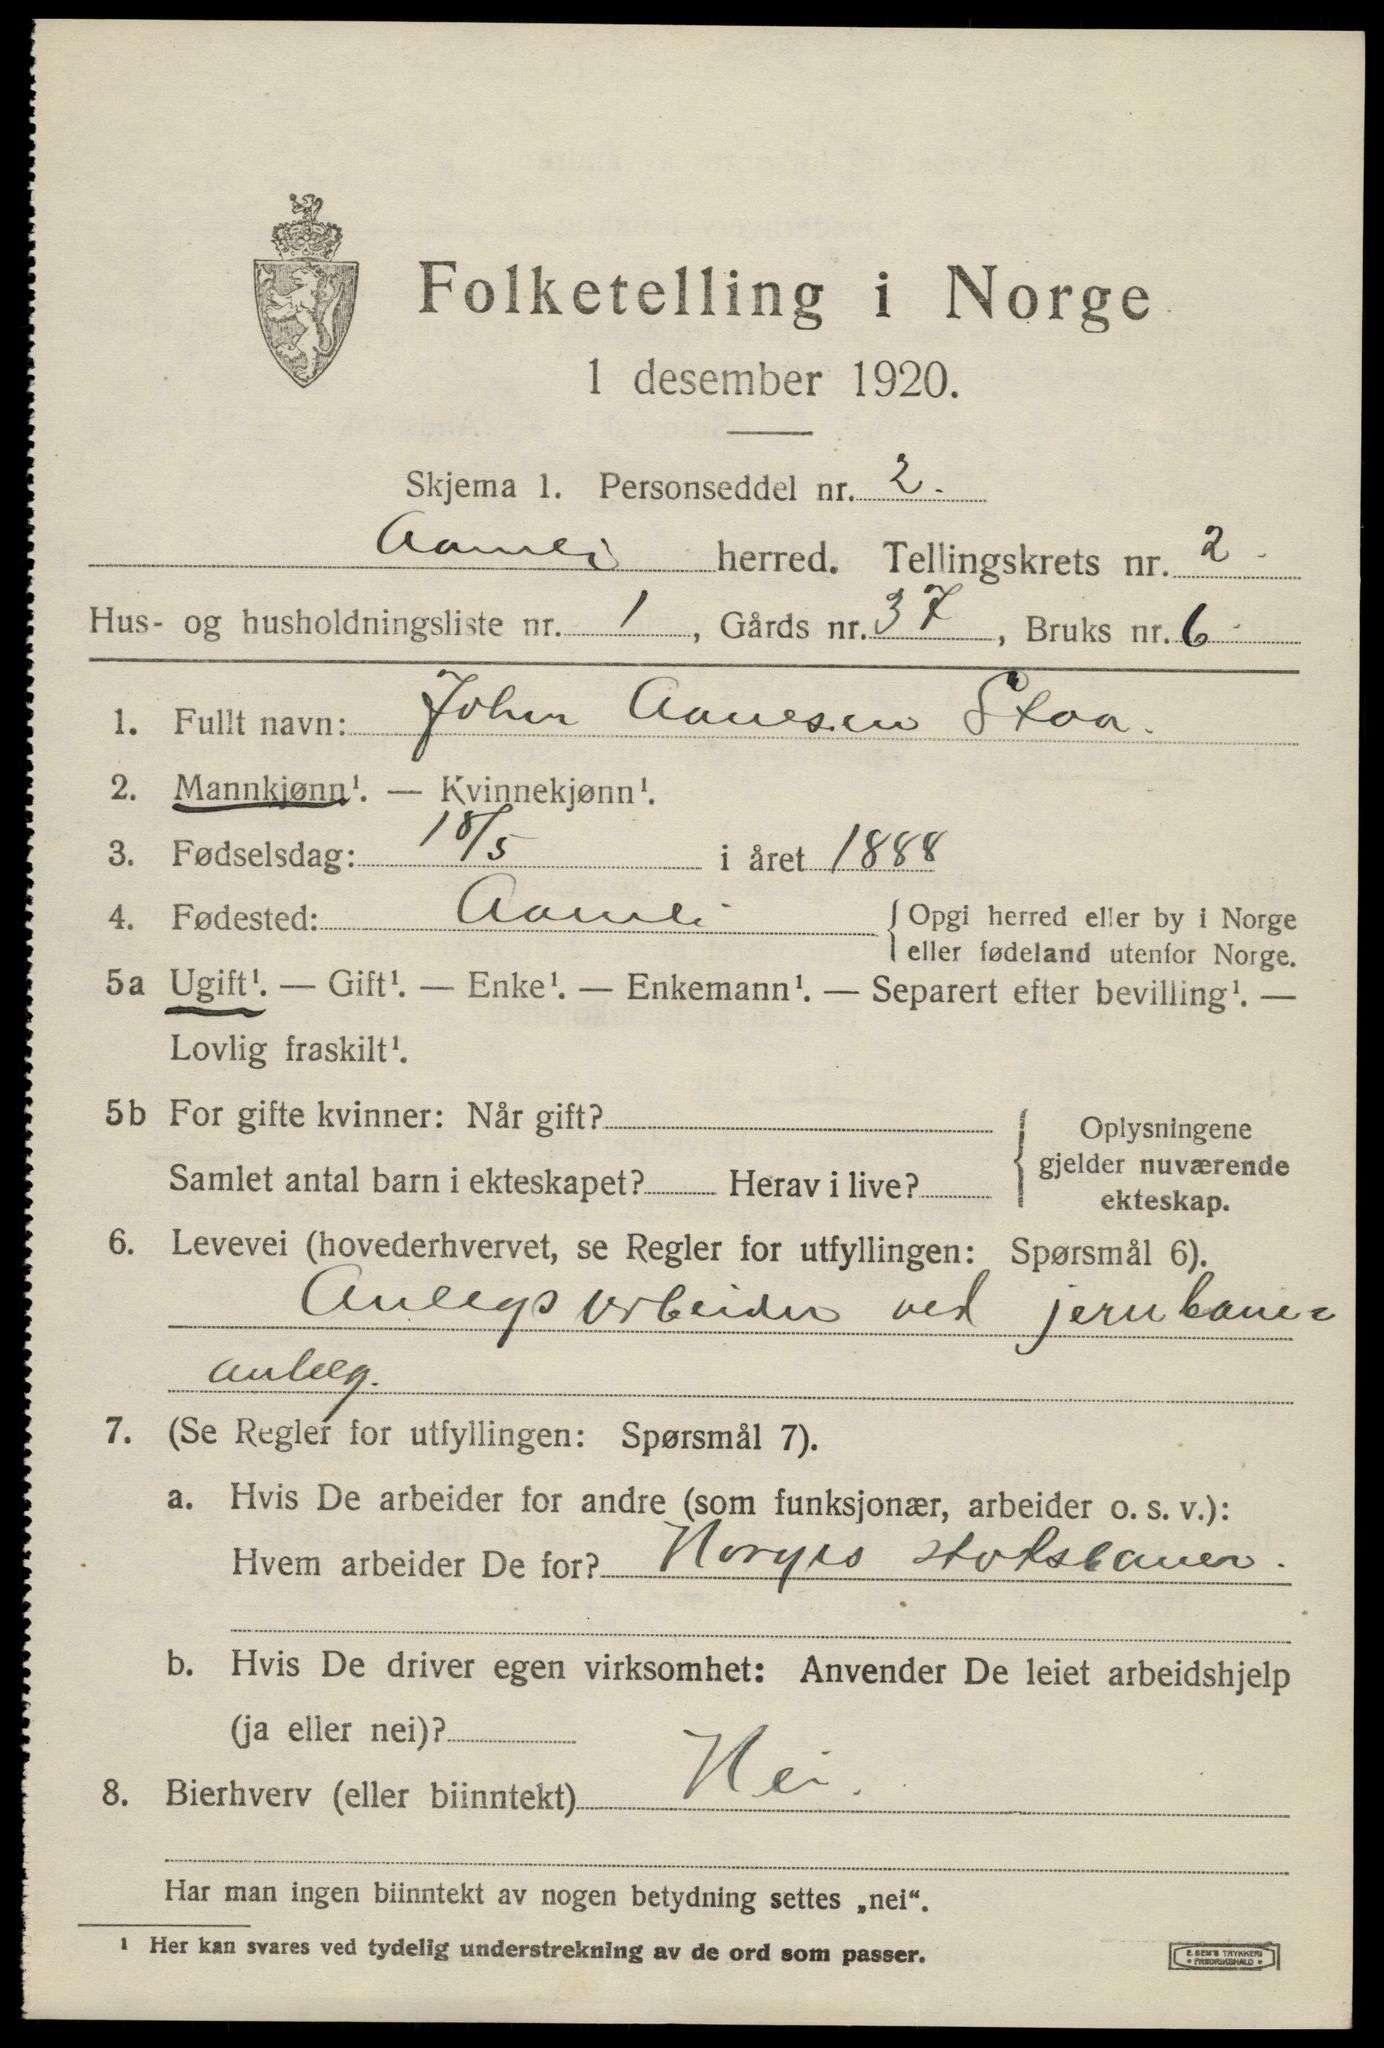 Folketelling i Norge
1 desember 1920.
Skjema 1. Personseddel nr. 2.
Aamli herred. Tellingskrets nr. 2.
Hus- og husholdningsliste nr. 1, Gårds nr. 37, Bruks nr. 6
1. Fullt navn: John Aanesen Staa.
2. Mannkjønn¹. — Kvinnekjønn¹.
3. Fødselsdag: 18/5 i året 1888
4. Fødested: Aamli {Opgi herred eller by i Norge
eller fødeland utenfor Norge.
5a Ugift¹. — Gift¹. — Enke¹. — Enkemann¹. — Separert efter bevilling¹. —
Lovlig fraskilt¹.
5b For gifte kvinner: Når gift?
Samlet antal barn i ekteskapet? Herav i live?
{Oplysningene
gjelder nuværende
ekteskap.
6. Levevei (hovederhvervet, se Regler for utfyllingen: Spørsmål 6).
Anlegsarbeider ved jernbane-
anlæg.
7. (Se Regler for utfyllingen: Spørsmål 7).
a. Hvis De arbeider for andre (som funksjonær, arbeider o. s. v.):
Hvem arbeider De for? Norges statsbaner.
b. Hvis De driver egen virksomhet: Anvender De leiet arbeidshjelp
(ja eller nei)?
8. Bierhverv (eller biinntekt) Nei.
Har man ingen biinntekt av nogen betydning settes „nei“.
¹ Her kan svares ved tydelig understrekning av de ord som passer.
E. SEM'S TRYKKERI
• FREDRIKSHALD •